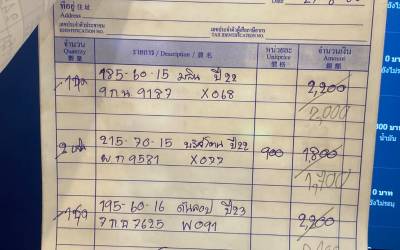 ที่อยู่ 住址
Address
เลขประจำตัวประชาชน
IDENTIFICATION NO.
เลขประจำตัวผู้เสียภาษีอากร
TAX IDENTIFICATION NO.
จำนวน รายการ / Description / 貨名 หน่วยละ จำนวนเงิน
Quantity Unitprice Amount
數量 價格 銀額
1ชุด 185-60-15 มลิน ปี22 2,200
9กฌ 9187 X068 2,000
2เส้น 215-70-15 บริสโตน ปี22 900 1,800
ผก 9581 X077 1,700
1ชุด 195-60-16 ดันลอป ปี23 2,200
7กฉ 7625 W091
0 บาท
น้ำมัน
0 บาท
0 บาท